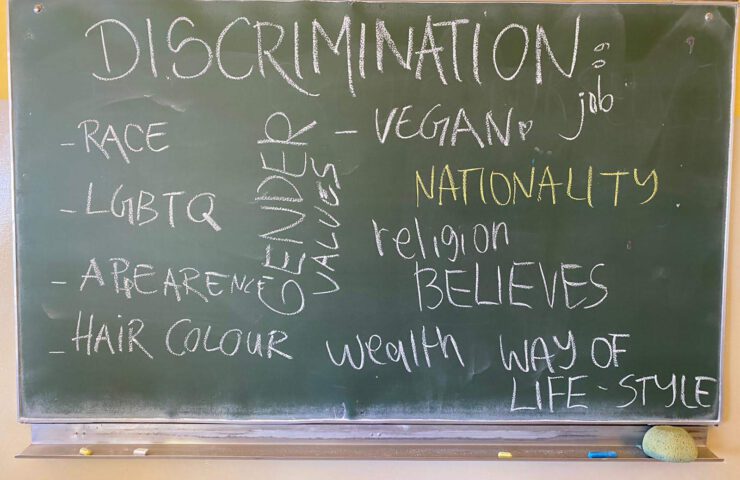 DISCRIMINATION:
job
- RACE
- LGBTQ
- APPEARENCE
- HAIR COLOUR
GENDER
VALUES
- VEGAN
NATIONALITY
religion
BELIEVES
wealth
WAY OF
LIFE-STYLE